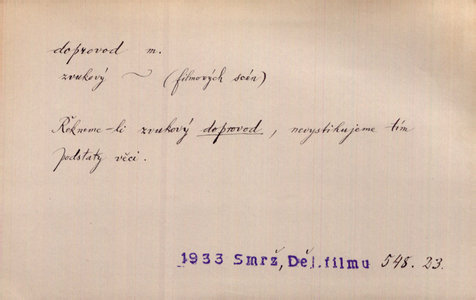 doprovod m.
zvukový ~ (filmových scén)
Řekneme-li zvukový doprovod, nevystihujeme tím
podstaty věci.
1933 Smrž, Děj.filmu 548.23.